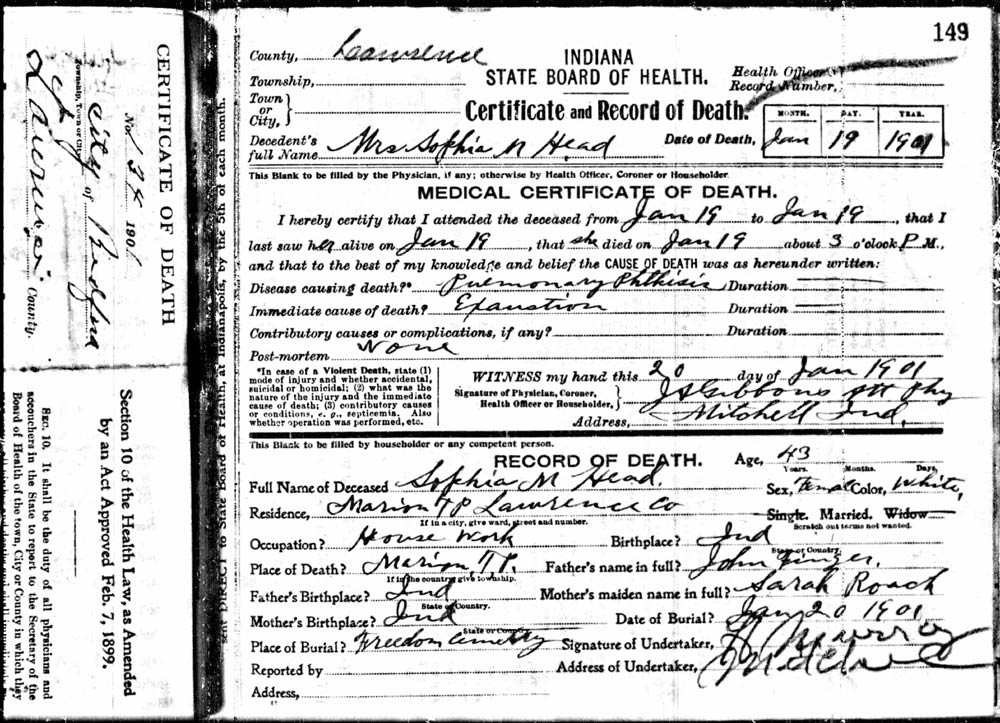 149
County, Lawrence
INDIANA
STATE BOARD OF HEALTH.
Township,
Health Officer's
Record Number,
Town
or
City,
Certificate and Record of Death.
MONTH. DAY. YEAR.
Decedent's
full Name Mrs Sophia M Head
Date of Death, Jan 19 1901
This Blank to be filled by the Physician, if any; otherwise by Health Officer, Coroner or Householder.
MEDICAL CERTIFICATE OF DEATH.
I hereby certify that I attended the deceased from Jan 19 to Jan 19, that I
last saw her alive on Jan 19, that she died on Jan 19 about 3 o'clock P M.,
and that to the best of my knowledge and belief the CAUSE OF DEATH was as hereunder written:
Disease causing death?* Pulmonary Phthisis Duration
Immediate cause of death? Exaustion Duration
Contributory causes or complications, if any? Duration
Post-mortem None
*In case of a Violent Death, state (1)
mode of injury and whether accidental,
suicidal or homicidal; (2) what was the
nature of the injury and the immediate
cause of death; (3) contributory causes
or conditions, e. g., septicemia. Also
whether operation was performed, etc.
WITNESS my hand this 20 day of Jan 1901
Signature of Physician, Coroner,
Health Officer or Householder,
J Gibbons Phy
Address, Mitchell Ind.
This Blank to be filled by householder or any competent person.
RECORD OF DEATH.
Age, 43
Years. Months. Days,
Full Name of Deceased Sophia M Head.
Sex, Femal Color, White,
Residence, Marion TP Lawrence Co
If in a city, give ward, street and number.
Single. Married. Widow
Scratch out terms not wanted.
Occupation? House Work Birthplace? Ind
State or Country.
Place of Death? Marion T.P. Father's name in full? John
If in the country give township.
Father's Birthplace? Ind Mother's maiden name in full? Sarah Roach
State or Country.
Mother's Birthplace? Ind Date of Burial? Jan 20 1901
State or Country
Place of Burial? Freedom Cemetery Signature of Undertaker,
Reported by Address of Undertaker,
Address,
CERTIFICATE OF DEATH
No. 34 1901
city of Bedford
Township, Town or City.
of Lawrence County.
Section 10 of the Health Law, as Amended
by an Act Approved Feb. 7, 1899.
SEC. 10. It shall be the duty of all physicians and
accoucheurs in the State to report to the Secretary of the
Board of Health of the town, City or County in which they
sent DIRECT to State Board of Health, at Indianapolis, by the 5th of each month.